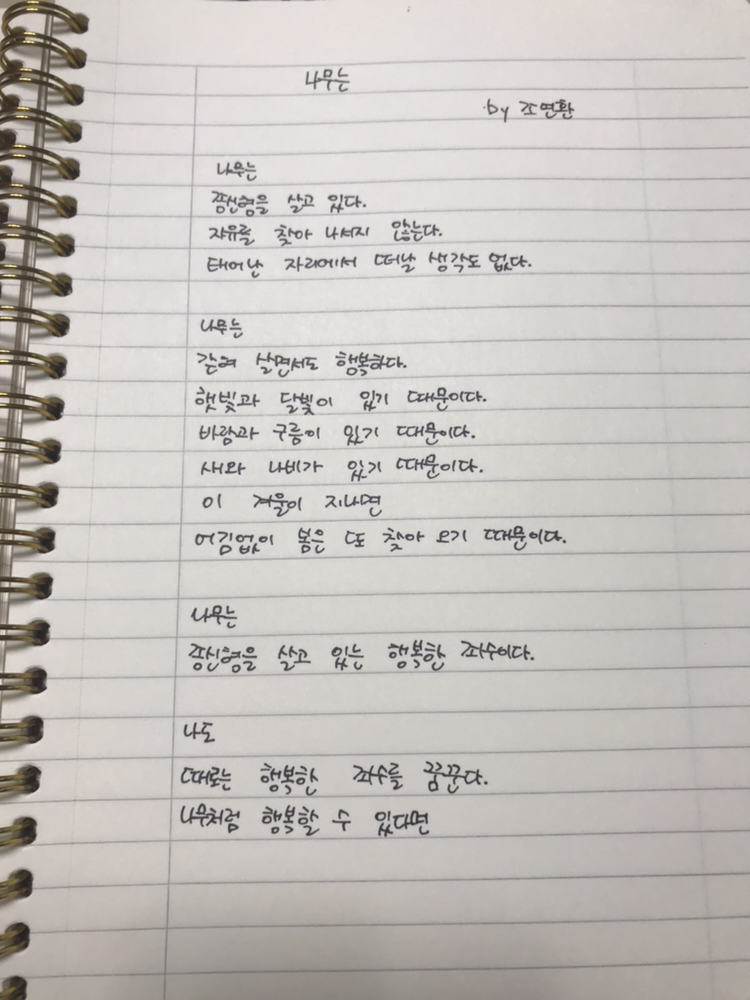 나무는
by 조연환
나무는
종신형을 살고 있다.
자유를 찾아 나서지 않는다.
태어난 자리에서 떠날 생각도 없다.
나무는
갇혀 살면서도 행복하다.
햇빛과 달빛이 있기 때문이다.
바람과 구름이 있기 때문이다.
새와 나비가 있기 때문이다.
이 겨울이 지나면
어김없이 봄은 또 찾아 오기 때문이다.
나무는
종신형을 살고 있는 행복한 죄수이다.
나도
때로는 행복한 죄수를 꿈꾼다.
나무처럼 행복할 수 있다면